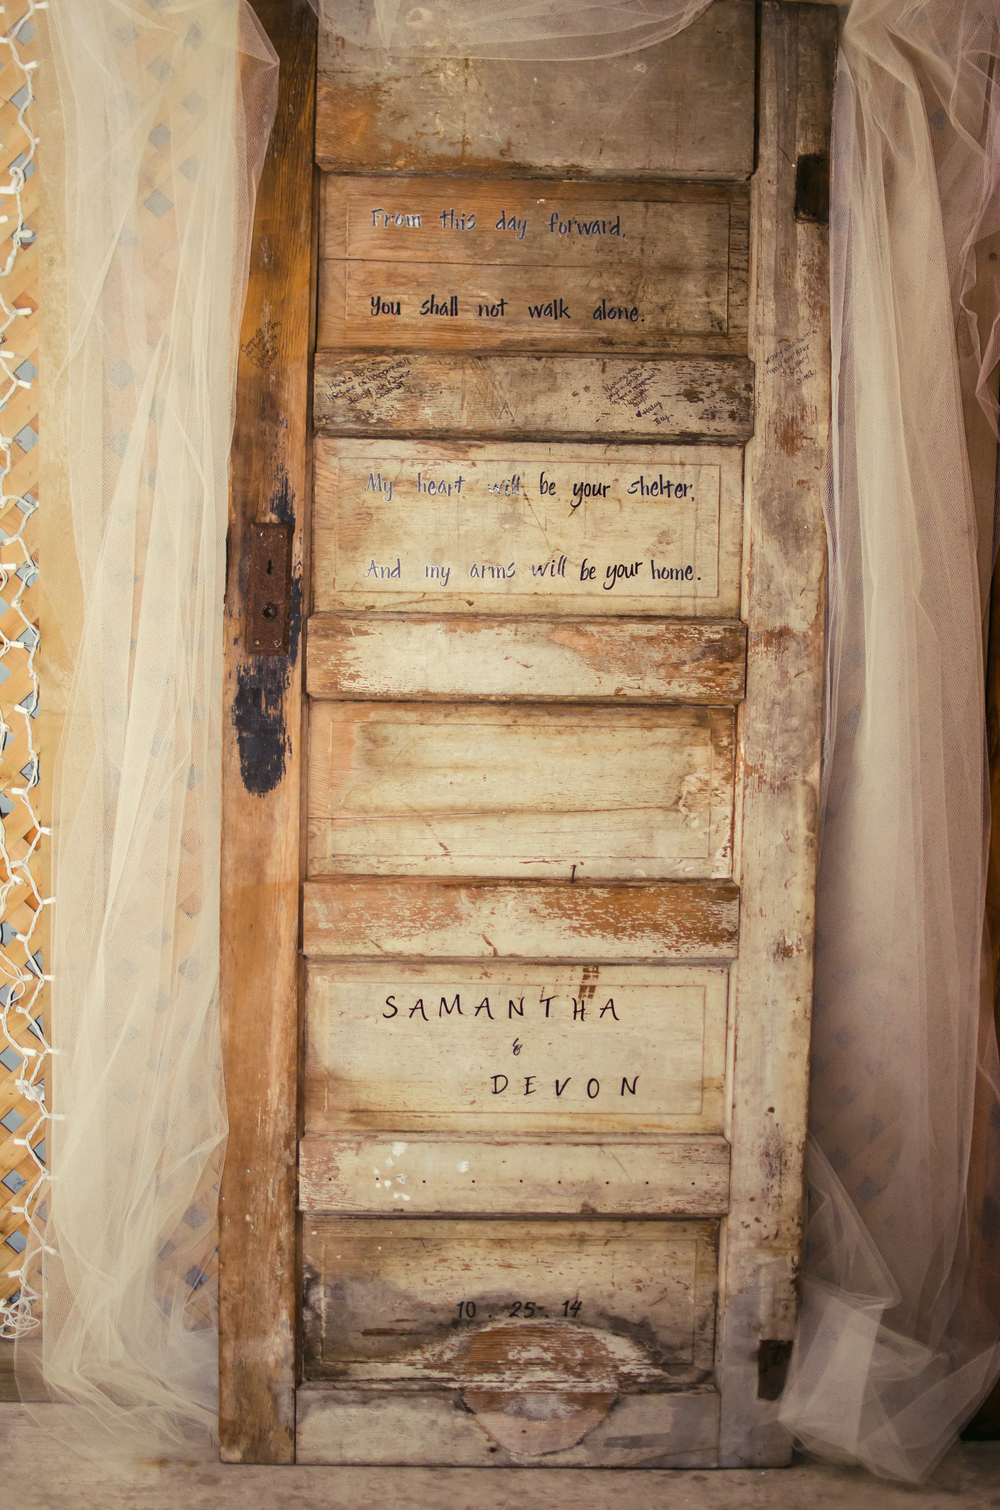 From this day forward,
You shall not walk alone.
My heart will be your shelter,
And my arms will be your home.
SAMANTHA
&
DEVON
10 . 25 . 14